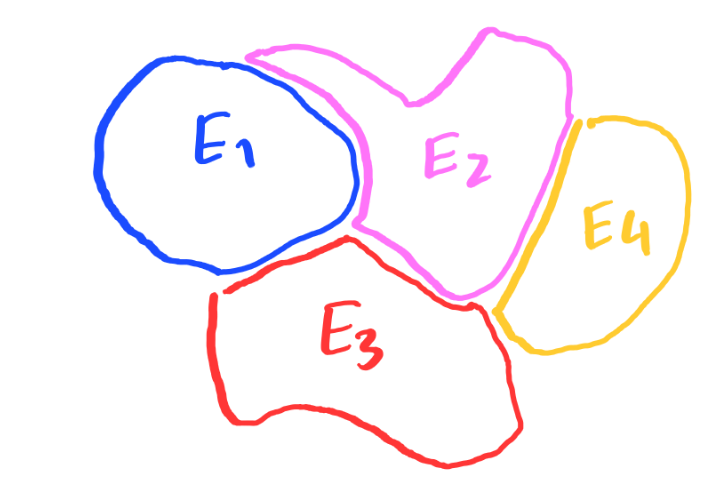 E1
E2
E4
E3